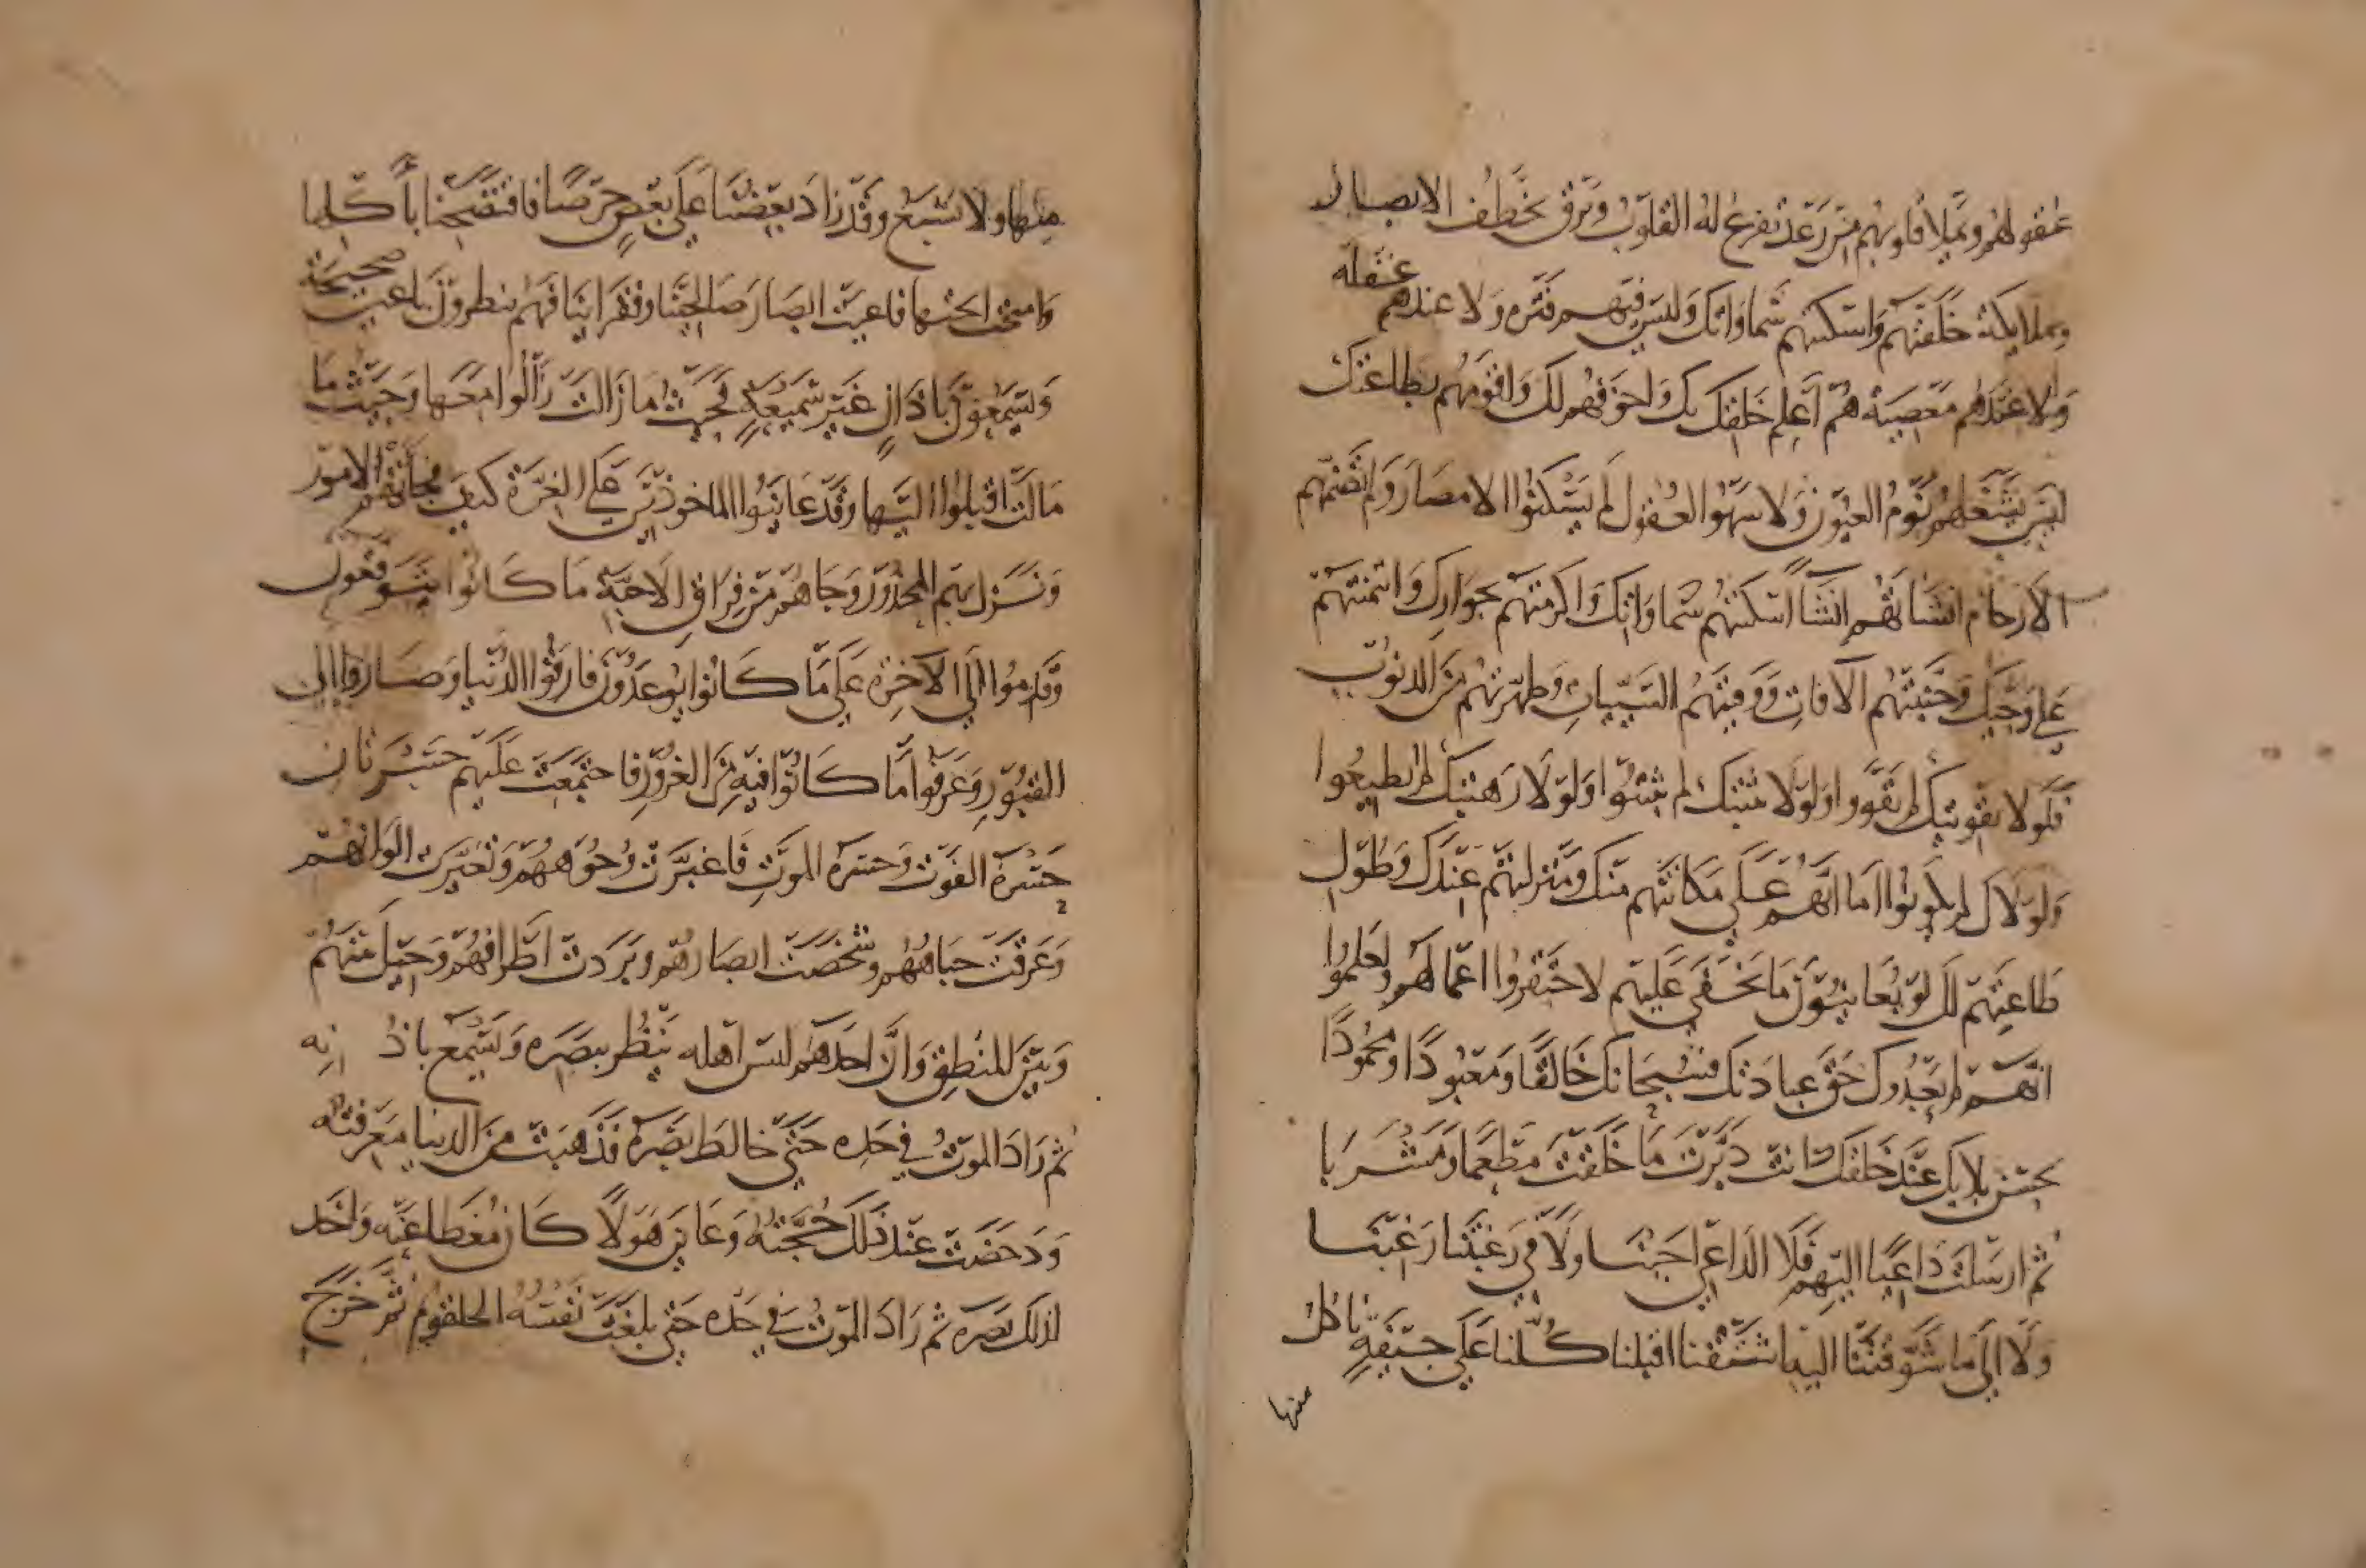 عقولهم وتملا قلوبهم من رعد تفزع له القلوب وبرق يخطف الابصار
وملايكة خلقتهم واسكنتهم سماواتك وليس فيهم فترة ولا عندهم غفلة
ولا عندهم معصية هم اعلم خلقك بك واخوفهم لك واقومهم بطاعتك
ليس يغشاهم نوم العيون ولا سهوا العقول لم يسكنوا الامصار ولم تضمهم
الارحام انشاتهم انشاً اسكنتهم سماواتك واكرمتهم بجوارك وائتمنتهم
على وحيك وجنبتهم الآفات ووقيتهم السيّيات وطهرتهم من الذنوب
فلولا تقويتك لم يقووا ولولا تثبتك لم يثبتوا ولولا رهبتك لم يطيعوا
ولولاك لم يكونوا اما انهم على مكانتهم منك ومنزلتهم عندك وطول
طاعتهم لك لو يعاينون ما يخفى عليهم لاحتقروا اعمالهم ولعلموا
انهم لم يعبدوك حق عبادتك فسبحانك خالقًا ومعبودًا ومحمودًا
بحسن بلايك عند خلقك انت دبرت ما خلقت مطعما ومشربا
ثم ارسلت داعيًا اليهم فلا الداعي اجبنا ولا في رغبتنا رغبنا
ولا الى ما شوقتنا اليه اشتقنا اقبلنا كلنا على جيفةٍ ناكل
منها
منها ولا نشبع وقد زاد بعضنا على بعضٍ حرصًا فافتضحنا باكلها
وامحت فاعيت ابصار صالحينا وفقراينا فهم ينظرون باعين صحيحة
ويسمعون باذانٍ غير سميعةٍ فحيث ما زالت زالوا معها وحيث ما
مالت اقبلوا اليها وقد عاينوا الماخوذين على الغرة كيف فجاتهم الامور
ونزل بهم المحذور وجاهم من فراق الاحبة ما كانوا يتوقعون
وقدموا الى الاخرة على ما كانوا يوعدون فارقوا الدنيا وصاروا الى
القبور وعرفوا ما كانوا فيه من الغرور فاجتمعت عليهم حسرتان
حسرة الفوت وحسرة الموت فاغبرت وجوههم وتغيرت الوانهم
وعرقت جباههم وشخصت ابصارهم وبردت اطرافهم وحيل منهم
وبين المنطق وان احدهم ليس اهله ينظر ببصره ويسمع باذنه
ثم زاد الموت في حده حتى خالط بصره فذهبت من الدنيا معرفته
ودحضت عند ذلك حجته وعاين هولًا كان مغطا عنه واحد
لذلك بصره ثم زاد الموت في حده حتى بلغت نفسه الحلقوم ثم خرج